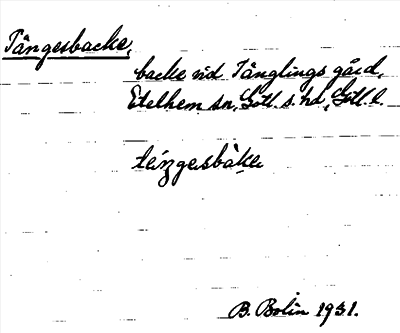 Tångesbacke,
backe vid Tånglings gård,
Etelhem sn, Gotl. s. hd, Gotl. l.
B. Bolin 1931.